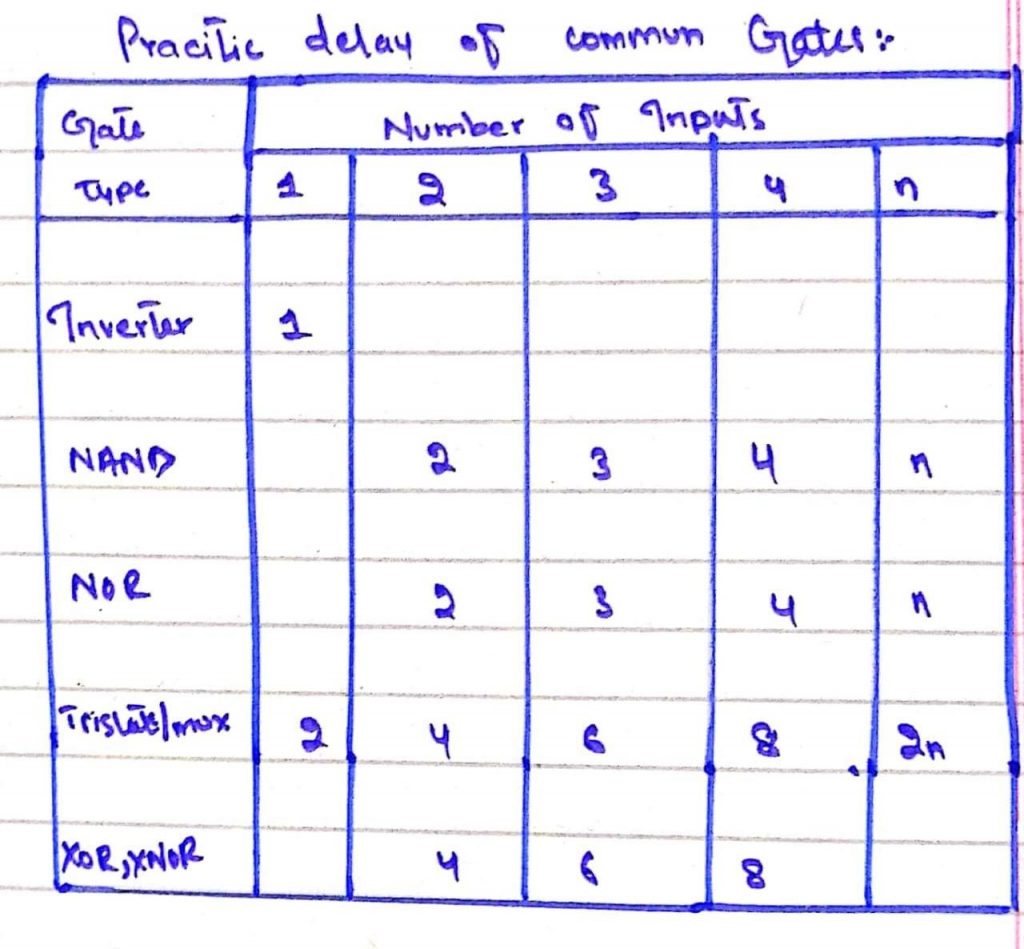 Pracitic delay of commun Gates:-
Gate Number of Inputs
Type 1 2 3 4 n
Inverter 1
NAND 2 3 4 n
NOR 2 3 4 n
Tristate/mux 2 4 6 8 2n
XOR, XNOR 4 6 8